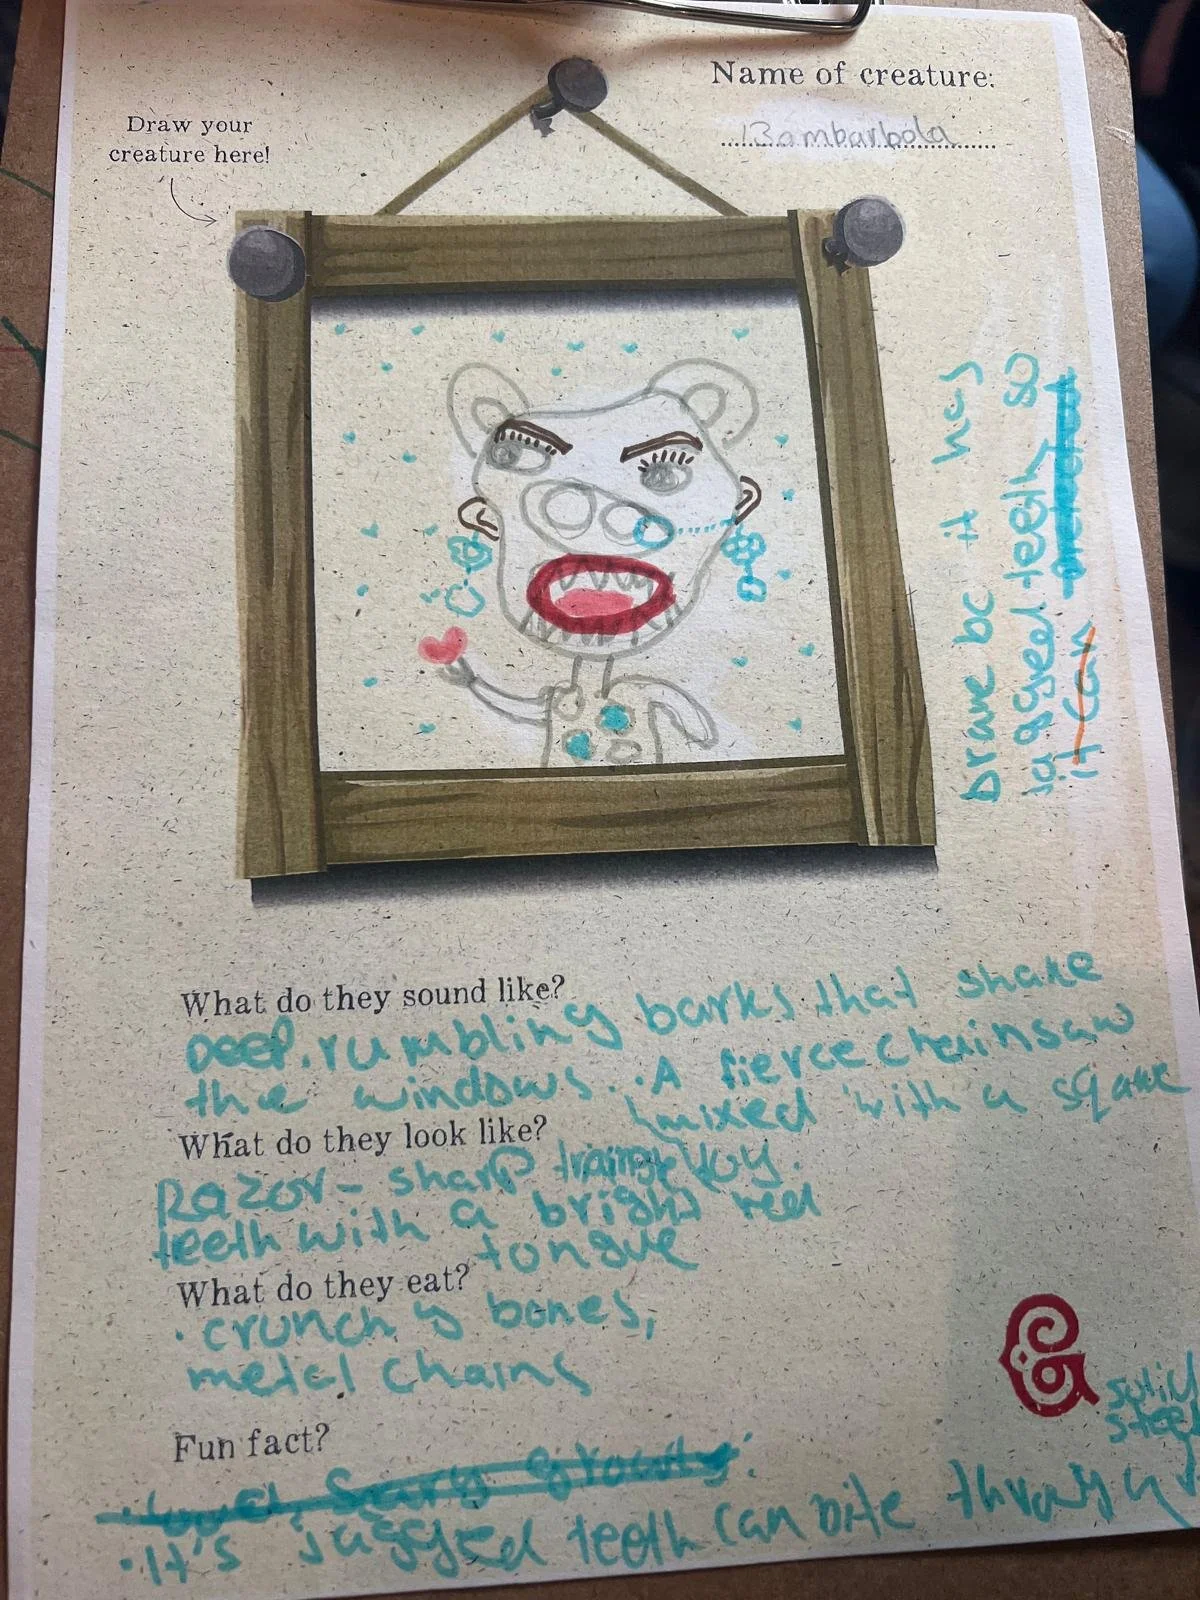 Name of creature:
Bambarbola
Draw your
creature here!
brake bc it has
jaggeel teeth so
it can
What do they sound like?
Deep, rumbling barks that shake
the windows. A fierce chainsaw
mixed with a sqauke
What do they look like?
toy.
Razor-sharp triangle
teeth with a bright red
tongue
What do they eat?
· crunchy bones,
metal chains
Fun fact?
· Loud, Scary growls.
· It's jagged teeth can bite through
solid
steel